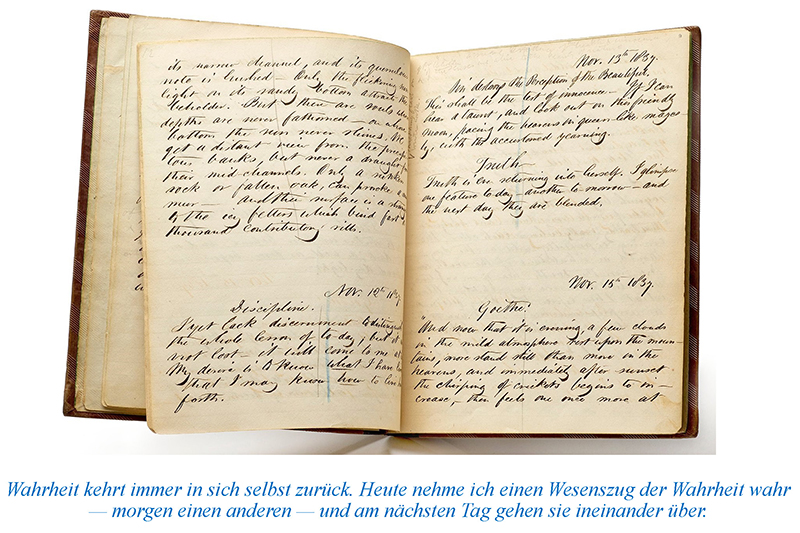 its narrow channel, and its querulous
note is hushed — Only the flickering sun
light on its sandy bottom attracts the
beholder. But there are souls whose
depths are never fathomed — on whose
bottom the sun never shines. We
get a distant view from the precipi
tous banks, but never a draught fr
their mid-channels. Only a sunken
rock or fallen oak, can provoke a
mur — and their surface is a
to the icy fetters which bind fast a
thousand contributory rills.
Nov. 12th 1837
Discipline.
I yet lack discernment to distinguish
the whole lesson of to-day; but it
not lost — it will come to me at
My desire is to know what I have
that I may know how to live
forth.
Nov. 13th 1837.
Sin destroys the Perception of the Beautiful.
This shall be the test of innocence — If I can
hear a taunt, and look out on this friendly
moon, pacing the heavens in queen-like majes-
ty, with the accustomed yearning.
Truth —
Truth is ever returning into herself. I glimpse
one feature to-day — another to-morrow — and
the next day they are blended.
Nov. 15th 1837.
Goethe.
"And now that it is evening, a few clouds
in the mild atmosphere rest upon the moun-
tains, more stand still than move in the
heavens, and immediately after sunset
the chirping of crickets begins to in-
crease, — then feels one once more at
Wahrheit kehrt immer in sich selbst zurück. Heute nehme ich einen Wesenszug der Wahrheit wahr
— morgen einen anderen — und am nächsten Tag gehen sie ineinander über.